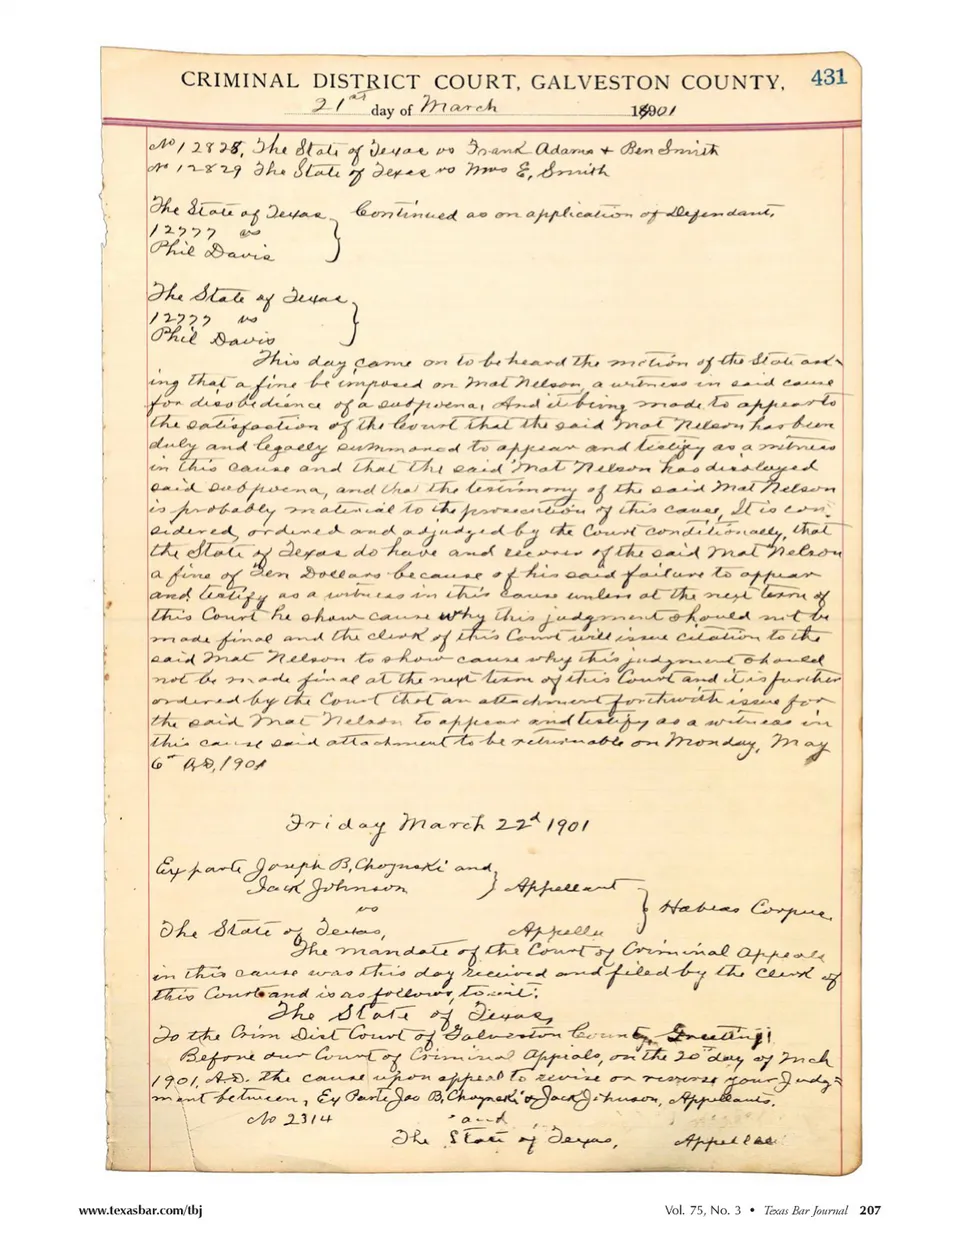 CRIMINAL DISTRICT COURT, GALVESTON COUNTY, 431
21st day of March 1901
No 12828, The State of Texas vs Frank Adams + Ben Smith
No 12829 The State of Texas vs Mrs E, Smith
The State of Texas } Continued as on application of Defendant,
12777 vs
Phil Davis
The State of Texas
12777 vs }
Phil Davis
This day came on to be heard the motion of the State ask-
ing that a fine be imposed on Mat Nelson, a witness in said cause
for disobedience of a subpoena, And it being made to appear to
the satisfaction of the Court that the said Mat Nelson has been
duly and legally summoned to appear and testify as a witness
in this cause and that the said Mat Nelson has disobeyed
said subpoena, and that the testimony of the said Mat Nelson
is probably material to the prosecution of this cause, It is con-
sidered, ordered and adjudged by the Court conditionally, that
the State of Texas do have and recover of the said Mat Nelson
a fine of Ten Dollars because of his said failure to appear
and testify as a witness in this cause unless at the next term of
this Court he show cause why this judgment should not be
made final and the clerk of this Court will issue citation to the
said Mat Nelson to show cause why this judgment should
not be made final at the next term of this Court and it is further
ordered by the Court that an attachment forthwith issue for
the said Mat Nelson to appear and testify as a witness in
this cause said attachment to be returnable on Monday, May
6th A.D, 1901
Friday March 22d 1901
Ex parte Joseph B, Choynski and
Jack Johnson } Appellant
vs } Habeas Corpus,
The State of Texas, Appellee
The mandate of the Court of Criminal Appeals
in this cause was this day received and filed by the Clerk of
this Court and is as follows, to wit:
The State of Texas,
To the Crim Dist Court of Galveston County, Greeting!
Before our Court of Criminal Appeals, on the 20th day of Mch
1901, A.D. the cause upon appeal to revise or reverse your Judg-
ment between, Ex Parte Jos B, Choynski & Jack Johnson, Appellants.
No 2314 and
The State of Texas, Appellee
www.texasbar.com/tbj Vol. 75, No. 3 • Texas Bar Journal 207